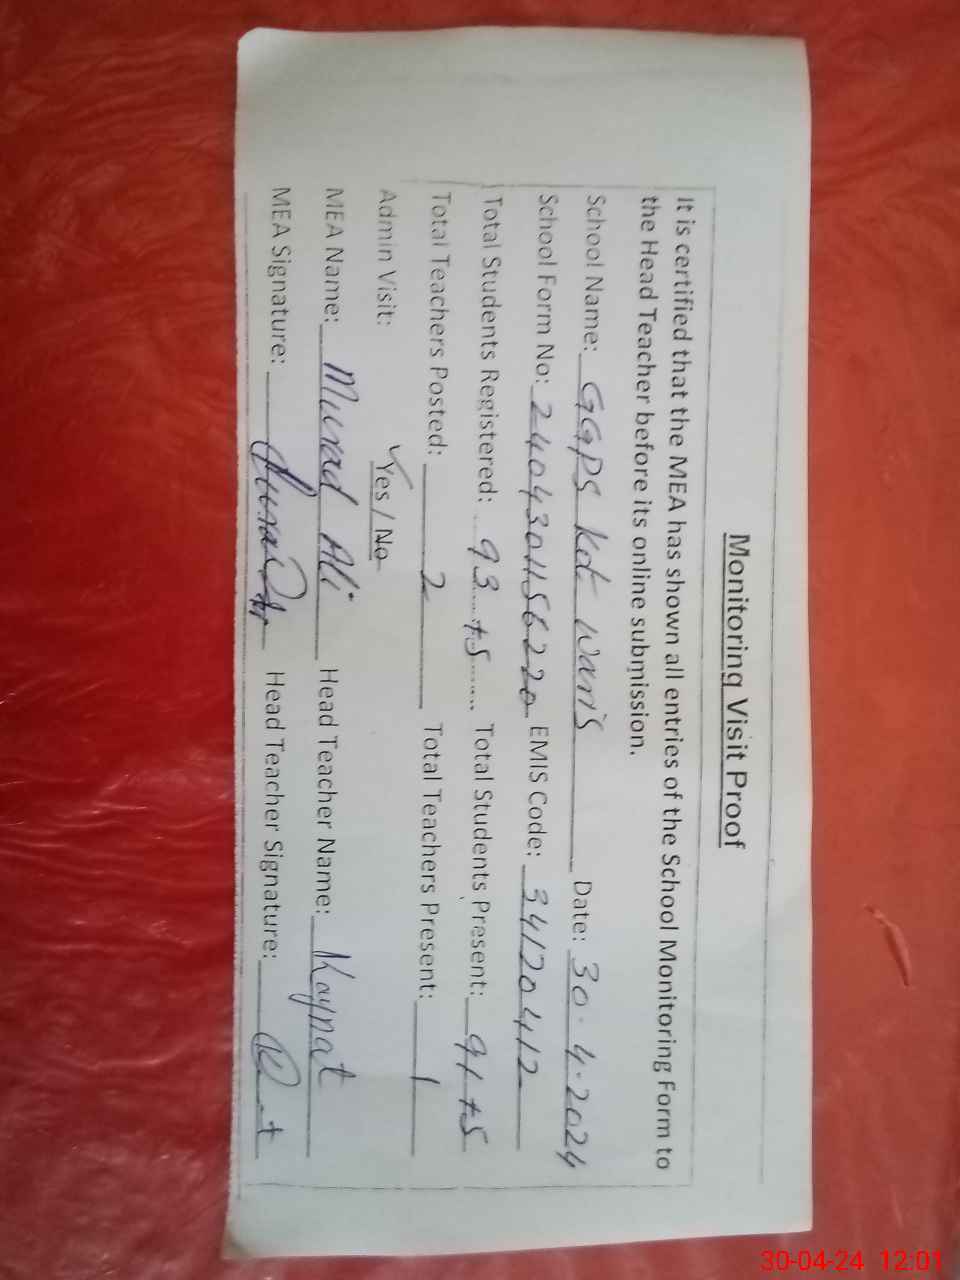 Monitoring Visit Proof
It is certified that the MEA has shown all entries of the School Monitoring Form to
the Head Teacher before its online submission.
School Name: GGPS Kot Waris Date: 30-4-2024
School Form No: 2404301156220 EMIS Code: 34120412
Total Students Registered: 93 +5 Total Students Present: 91+5
Total Teachers Posted: 2 Total Teachers Present: 1
Admin Visit: ✓Yes / No
MEA Name: Murad Ali Head Teacher Name: Kaynat
MEA Signature: Head Teacher Signature:
30-04-24 12:01